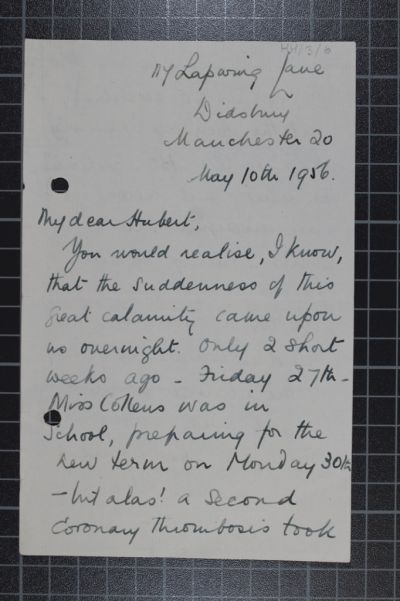 Lapwing Lane
Didsbury
Manchester 20
May 10th 1956.
My dear Hubert,
You would realise, I know,
that the suddenness of this
great calamity came upon
us overnight. Only 2 short
weeks ago - Friday 27th -
Miss Collens was in
School, preparing for the
new term on Monday 30th
- but alas! a second
Coronary Thrombosis took